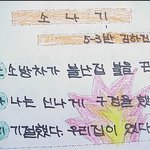 소나기
5-3반 김하진
소 소방차가 불난집 불을 끈
나 나는 신나게 구경을 했
기 기절했다. 우리집이 었다